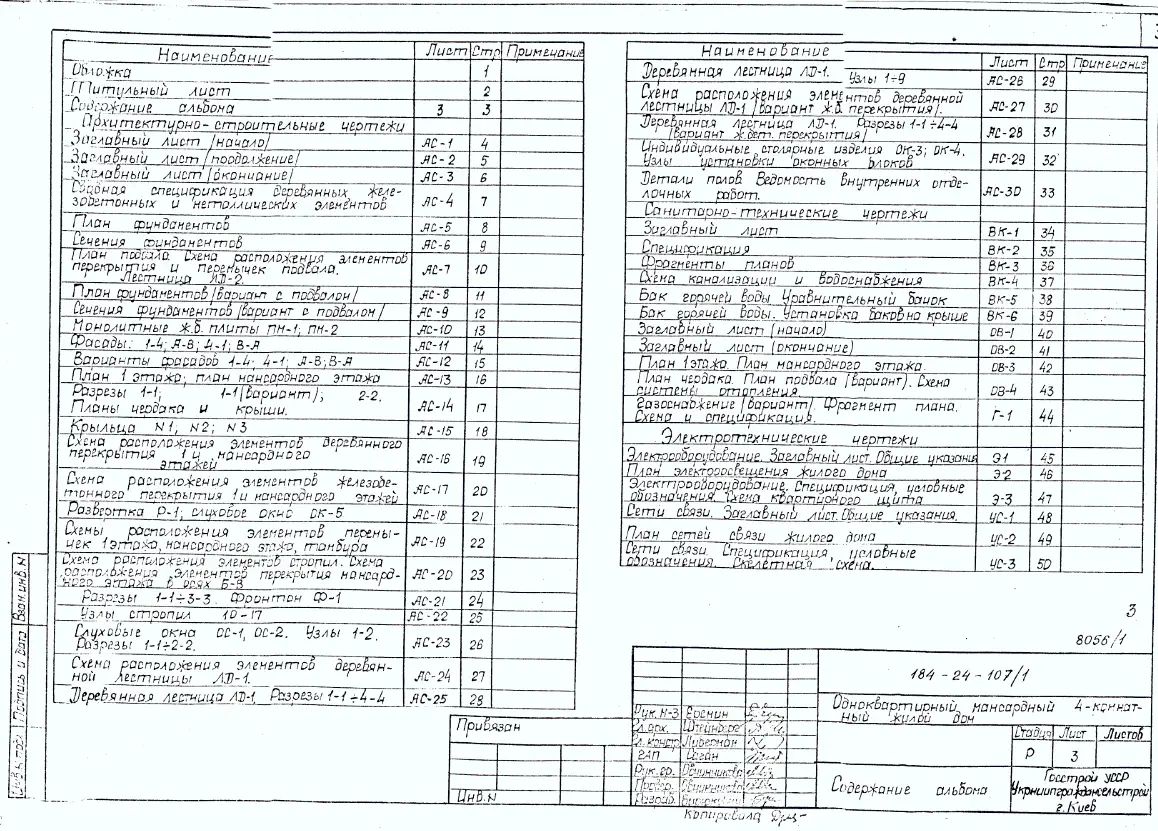 Наименование Лист Стр Примечание
Обложка 1
Титульный лист 2
Содержание альбома 3 3
Архитектурно-строительные чертежи
Заглавный лист /начало/ АС-1 4
Заглавный лист /продолжение/ АС-2 5
Заглавный лист /окончание/ АС-3 6
Сводная спецификация деревянных желе-
зобетонных и неталлических элементов АС-4 7
План фундаментов АС-5 8
Сечения фундаментов АС-6 9
План подвала. Схема расположения элементов
перекрытия и перемычек подвала.
Лестница ЛВ-2. АС-7 10
План фундаментов /вариант с подвалом/ АС-8 11
Сечения фундаментов /вариант с подвалом/ АС-9 12
Монолитные ж.б. плиты ПМ-1; ПМ-2 АС-10 13
Фасады: 1-4; А-В; 4-1; В-А АС-11 14
Варианты фасадов 1-4; 4-1; А-В; В-А АС-12 15
План 1 этажа; план мансардного этажа АС-13 16
Разрезы 1-1; 1-1(вариант); 2-2.
Планы чердака и крыши. АС-14 17
Крыльца N1; N2; N3 АС-15 18
Схема расположения элементов деревянного
перекрытия 1 и мансардного
этажей АС-16 19
Схема расположения элементов железобе-
тонного перекрытия 1 и мансардного этажей АС-17 20
Развертка Р-1; слуховое окно ОК-5 АС-18 21
Схемы расположения элементов перемы-
чек 1 этажа, мансардного этажа, тамбура АС-19 22
Схема расположения элементов стропил. Схема
расположения элементов перекрытия мансард-
ного этажа в осях Б-В АС-20 23
Разрезы 1-1÷3-3. Фронтон Ф-1 АС-21 24
Узлы стропил 10-17 АС-22 25
Слуховые окна ОС-1, ОС-2. Узлы 1-2.
Разрезы 1-1÷2-2. АС-23 26
Схема расположения элементов деревян-
ной лестницы ЛД-1. АС-24 27
Деревянная лестница ЛД-1, Разрезы 1-1÷4-4 АС-25 28
Наименование Лист Стр Примечание
Деревянная лестница ЛД-1. Узлы 1÷9 АС-26 29
Схема расположения элементов деревянной
лестницы ЛД-1 /вариант ж.б. перекрытия/. АС-27 30
Деревянная лестница ЛД-1. Разрезы 1-1÷4-4
/вариант ж.бет. перекрытия/ АС-28 31
Индивидуальные столярные изделия ОК-3; ОК-4.
Узлы установки оконных блоков АС-29 32
Детали полов. Ведомость внутренних отде-
лочных работ. АС-30 33
Санитарно-технические чертежи
Заглавный лист ВК-1 34
Спецификация ВК-2 35
Фрагменты планов ВК-3 36
Схема канализации и водоснабжения ВК-4 37
Бак горячей воды. Уравнительный бачок ВК-5 38
Бак горячей воды. Установка баков на крыше ВК-6 39
Заглавный лист (начало) ОВ-1 40
Заглавный лист (окончание) ОВ-2 41
План 1 этажа. План мансардного этажа. ОВ-3 42
План чердака. План подвала (вариант). Схема
системы отопления. ОВ-4 43
Газоснабжение /вариант/. Фрагмент плана.
Схема и спецификация. Г-1 44
Электротехнические чертежи
Электрооборудование. Заглавный лист. Общие указания Э1 45
План электроосвещения жилого дома Э-2 46
Электрооборудование. Спецификация, условные
обозначения. Схема квартирного щитка Э-3 47
Сети связи. Заглавный лист. Общие указания. УС-1 48
План сетей связи жилого дома УС-2 49
Сети связи. Спецификация, условные
обозначения. Скелетная схема. УС-3 50
3
8056/1
184-24-107/1
Одноквартирный мансардный 4-комнат-
ный жилой дом
Стадия Лист Листов
Р 3
Содержание альбома
Госстрой УССР
Укрниипграждансельстрой
г. Киев
Привязан
Инв.N
Рук. М-3 Ерснин
Гл. арх. Штейнберг
Гл. констр Либерман
ГАП Цаган
Рук. гр. Овчинникова
Провер. Овчинникова
Разраб.
Копировала
Инв. N подл. Подпись и дата Взам. инв. N